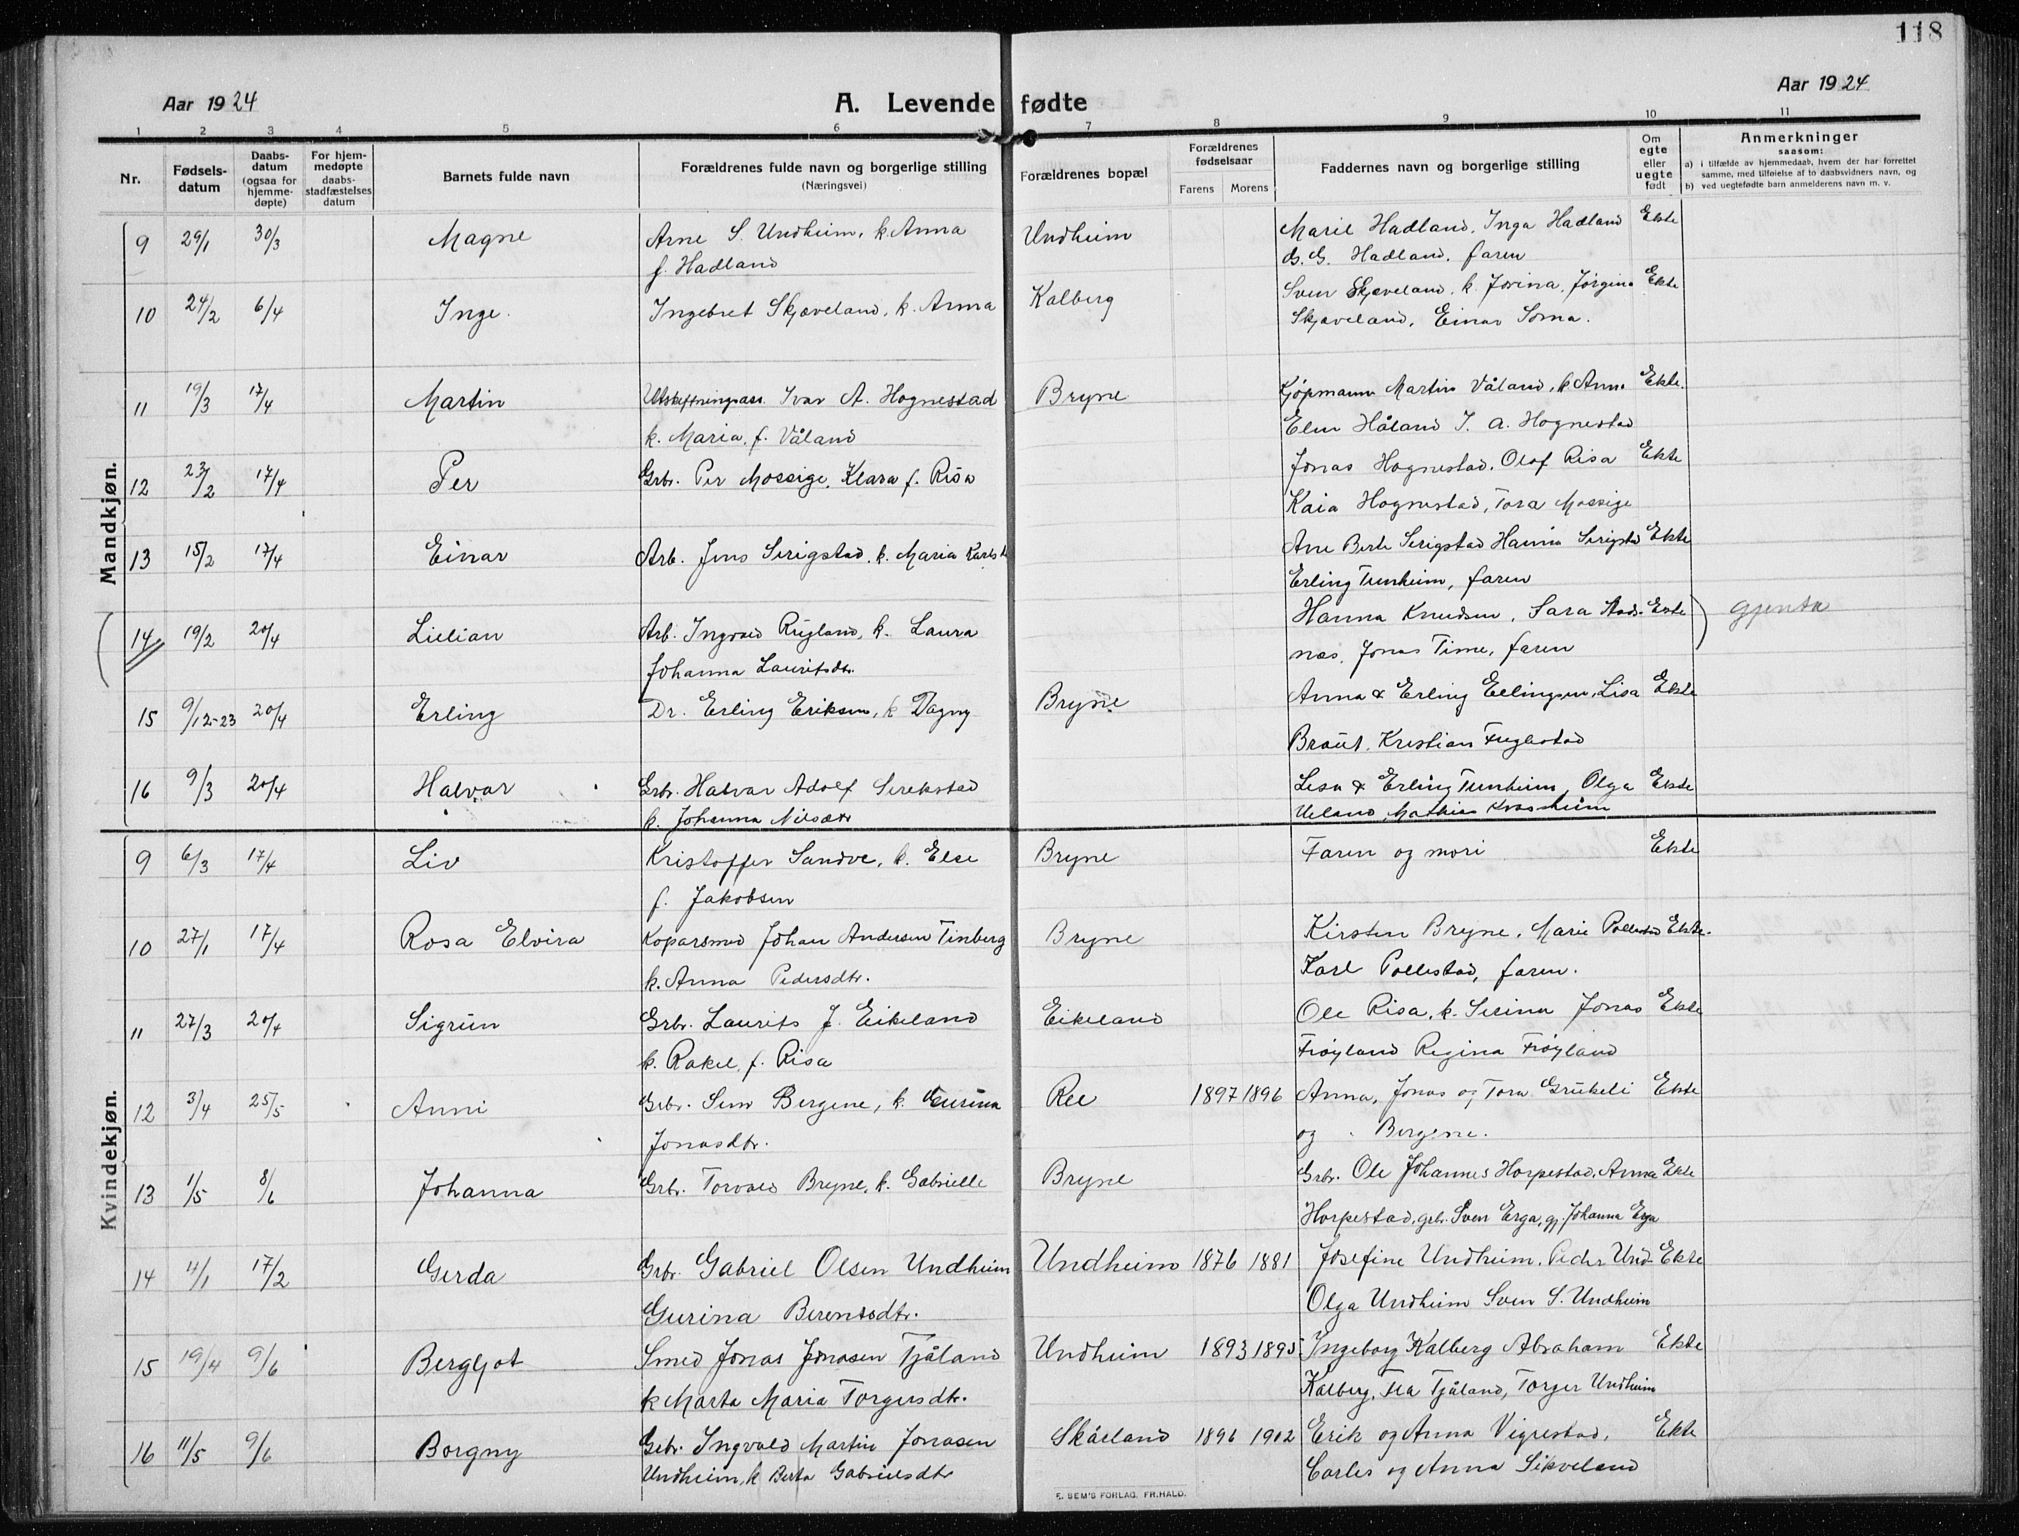 118
Aar 1924
A. Levende fødte
Aar 1924
1 2 3 4 5 6 7 8 9 10 11
Nr.
Fødsels-
datum
Daabs-
datum
(ogsaa for
hjemme-
døpte)
For hjem-
medøpte
daabs-
stadfæstelses
datum
Barnets fulde navn
Forældrenes fulde navn og borgerlige stilling
(Næringsvei)
Forældrenes bopæl
Forældrenes
fødselsaar
Farens Morens
Faddernes navn og borgerlige stilling
Om
egte
eller
uegte
født
Anmerkninger
saasom:
a) i tilfælde av hjemmedaab, hvem der har forrettet
samme, med tilføielse af to daabsvidners navn, og
b) ved uegtefødte barn anmelderens navn m. v.
Mandkjøn.
9 29/1 30/3 Magne Arne S. Undheim, k. Anna Undheim Marie Hadland, Inga Hadland Ekte
f. Hadland G. G. Hadland, faren
10 24/2 6/4 Inge. Ingebret Skjæveland, k. Anna Kalberg Sven Skjæveland, k. Jorina, Jørgine Ekte
Skjæveland, Einar Soma.
11 19/3 17/4 Martin Utskiftningsass. Ivar A. Hognestad Bryne Kjøpmann Martin Våland, k. Anna Ekte.
k. Maria, f. Våland Elen Håland I. A. Hognestad
12 23/2 17/4 Per Grbr. Per Mossige, Klara f. Risa Jonas Hognestad, Olof Risa Ekte
Kaia Hognestad, Tora Mossige
13 15/2 17/4 Einar Arb. Jens Serigstad, k. Maria Ane Berte Serigstad Hanna Serigstad Ekte
Erling Tunheim, faren
14 19/2 20/4 Lielian Arb. Ingvald Rugland, k. Laura Hanna Knudsen, Sara Aads- Ekte gjenta
Johanna Lauritsdtr. nes, Jonas Time, faren
15 9/12-23 20/4 Erling Dr. Erling Eriksen, k. Dagny Bryne Anna & Erling Ellingsen, Lisa Ekte
Braut, Kristian Fuglestad
16 9/3 20/4 Halvar Grbr. Halvar Adolf Serikstad Lisa & Erling Tunheim, Olga Ekte
k. Johanna Nilsdtr Ueland, Mathias Kvassheim
Kvindekjøn.
9 6/3 17/4 Liv Kristoffer Sandve, k. Else Bryne Faren og mori Ekte
f. Jakobsen
10 27/1 17/4 Rosa Elvira Koparsmed Johan Andersen Tinberg Bryne Kirsten Bryne, Marie Pollestad Ekte.
k. Anna Pedersdtr. Karl Pollestad, faren.
11 27/3 20/4 Sigrun Grbr. Laurits J. Eikeland Eikeland Ole Risa, k. Serina Jonas Ekte
k. Rakel, f. Risa Frøyland Regina Frøyland
12 3/4 25/5 Anni Grbr. Sem Bergene, k. Gurina Ree 1897 1896 Anna, Jonas og Tora Grudeli Ekte
Jonasdtr. og Bergene.
13 1/5 8/6 Johanna Grbr. Torvald Bryne, k. Gabrielle Bryne Grbr. Ole Johannes Horpestad, Anna Ekte
Horpestad, grbr. Sven Erga, gj. Johanna Erga
14 4/1 17/2 Gerda Grbr Gabriel Olsen Undheim Undheim 1876 1881 Josefine Undheim, Peder Und- Ekte
Gurina Berentsdtr. Olga Undheim Sven S. Undheim
15 19/4 9/6 Bergljot Smed Jonas Jonasen Tjåland Undheim 1893 1895 Ingeborg Kalberg Abraham Ekte
k Marta Maria Torgersdtr. Kalberg, Tea Tjåland, Torger Undheim
16 11/5 9/6 Borgny Gbr. Ingvald Martin Jonasen Skåeland 1896 1902 Erik og Anna Vigrestad, Ekte
Undheim, k Berta Gabrielsdtr Carles og Anna Sikveland
E. SEM'S FORLAG. FR.HALD.